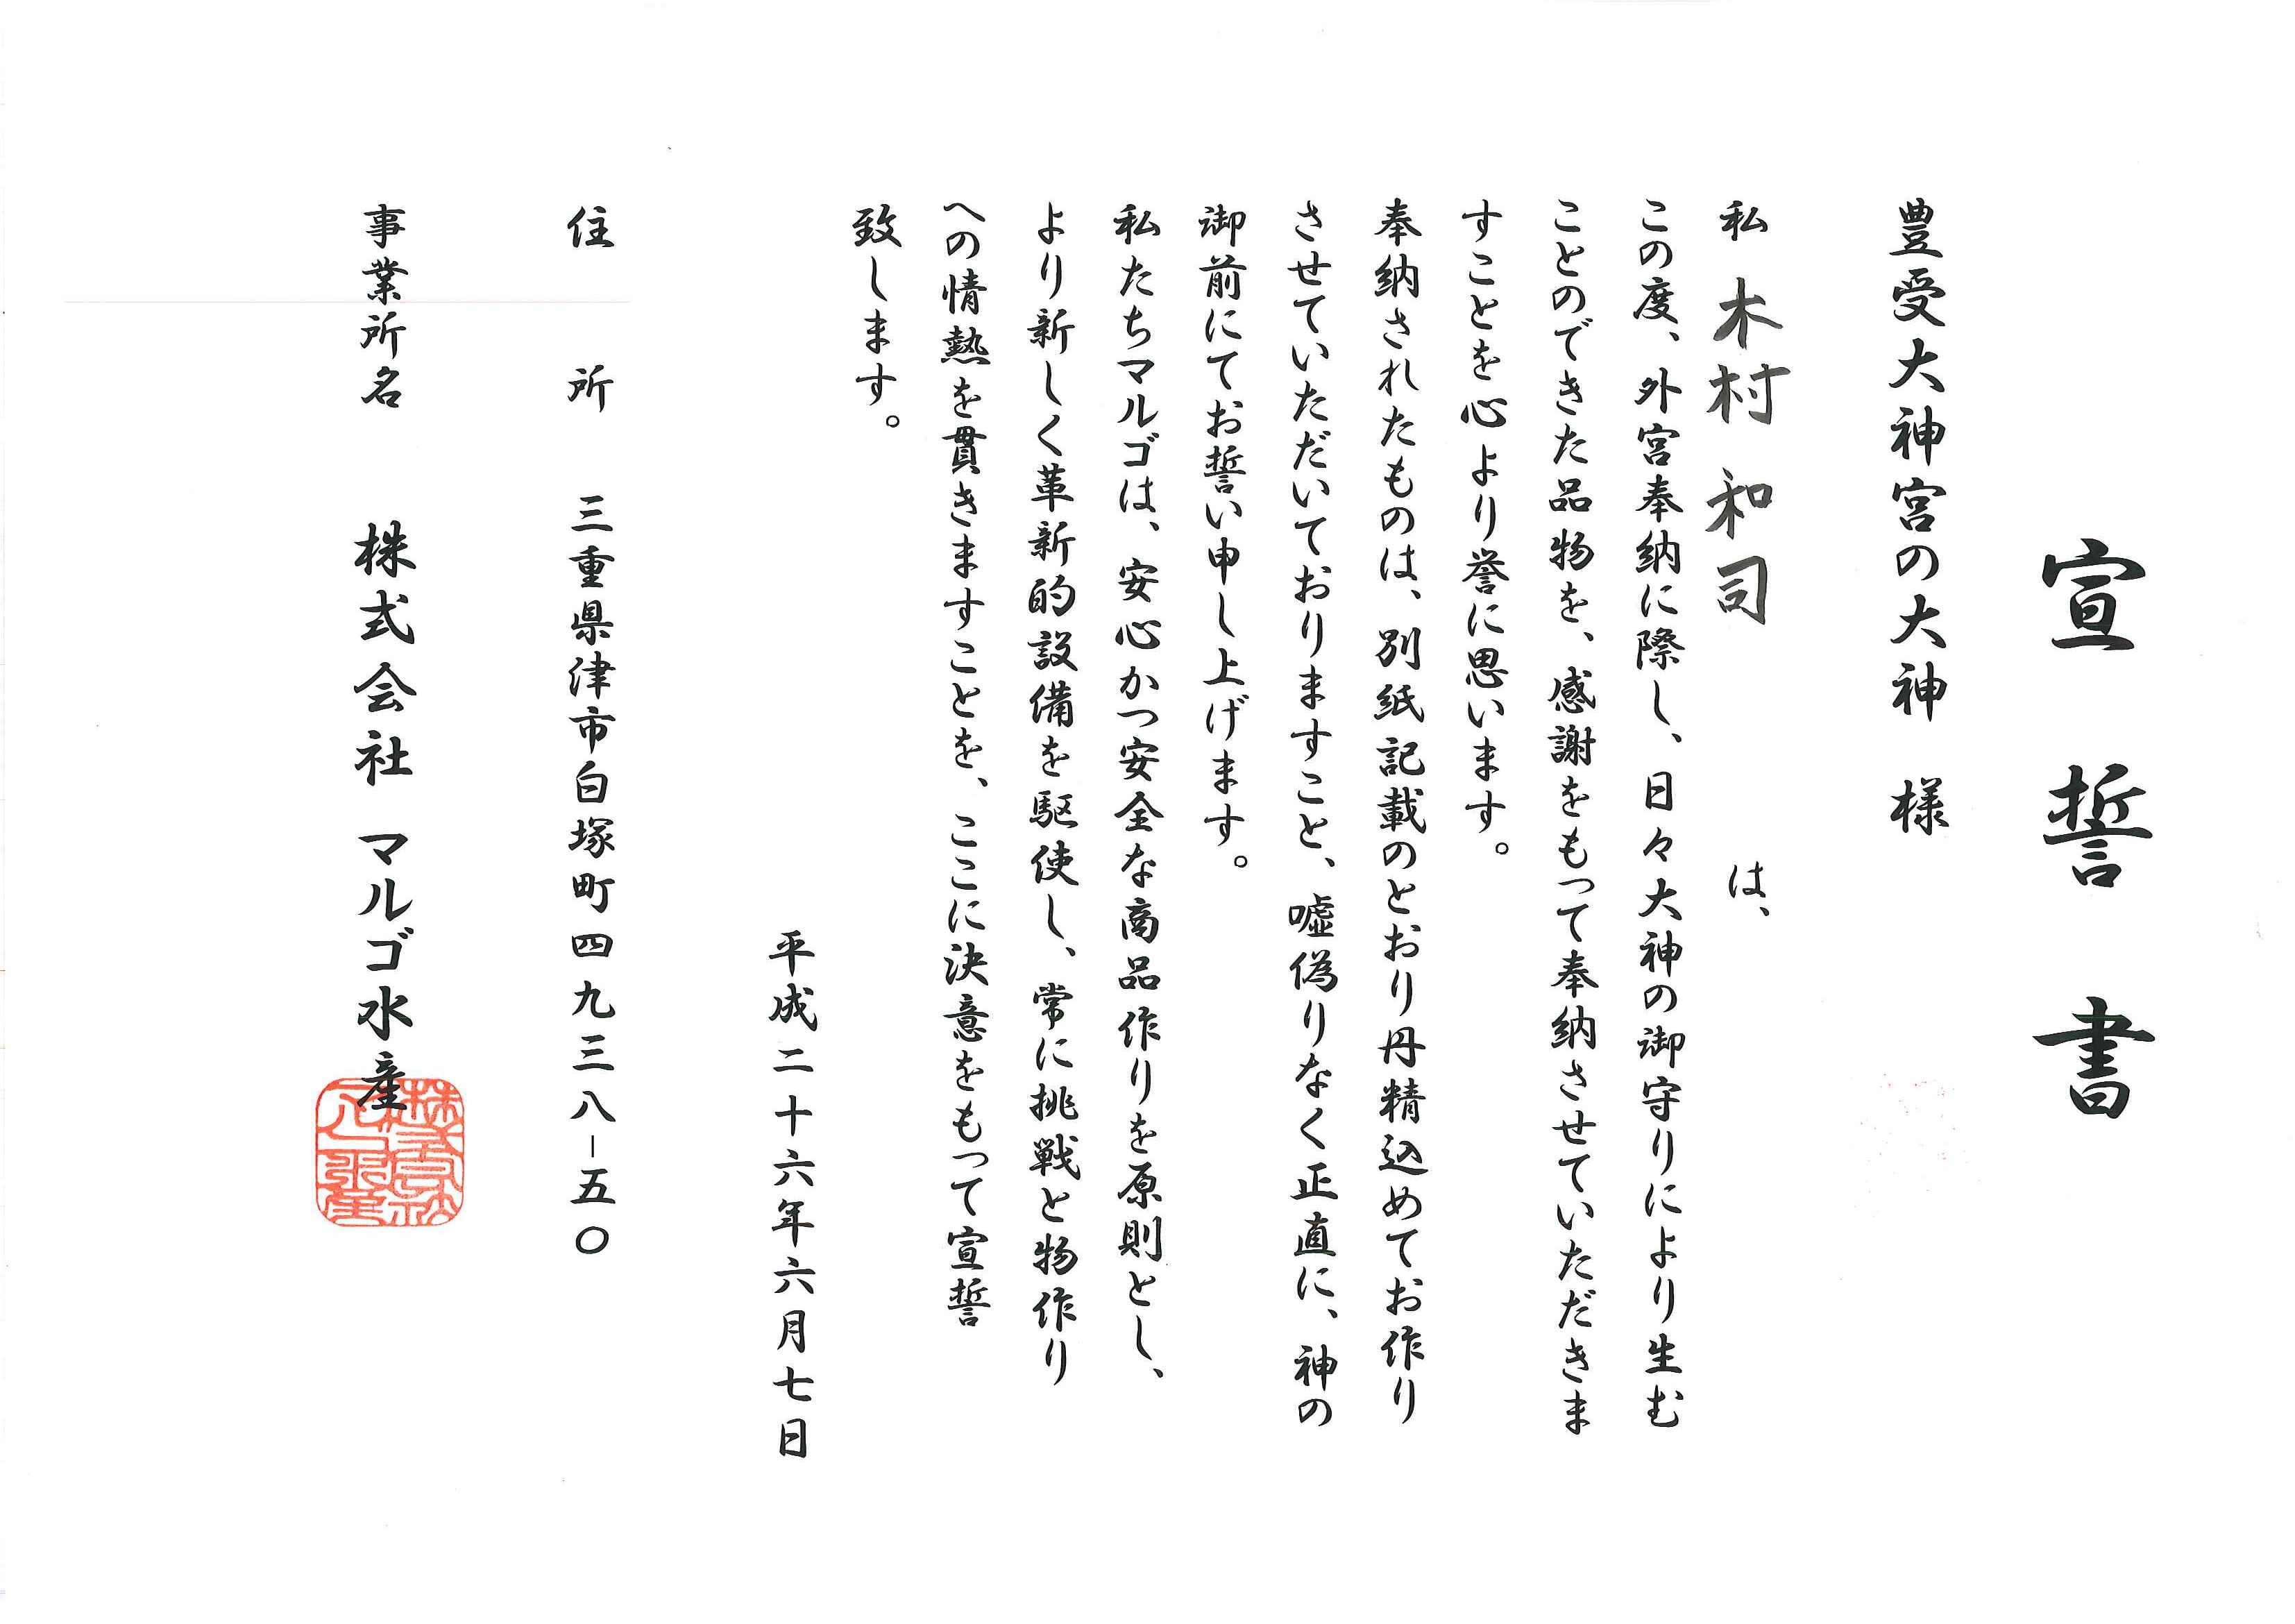 宣誓書
豊受大神宮の大神 様
私 木村 和司 は、
この度、外宮奉納に際し、日々大神の御守りにより生む
ことのできた品物を、感謝をもって奉納させていただきま
すことを心より誉に思います。
奉納されたものは、別紙記載のとおり丹精込めてお作り
させていただいておりますこと、嘘偽りなく正直に、神の
御前にてお誓い申し上げます。
私たちマルゴは、安心かつ安全な商品作りを原則とし、
より新しく革新的設備を駆使し、常に挑戦と物作り
への情熱を貫きますことを、ここに決意をもって宣誓
致します。
平成二十六年六月七日
住 所 三重県津市白塚町四九三八－五〇
事業所名 株式会社 マルゴ水産